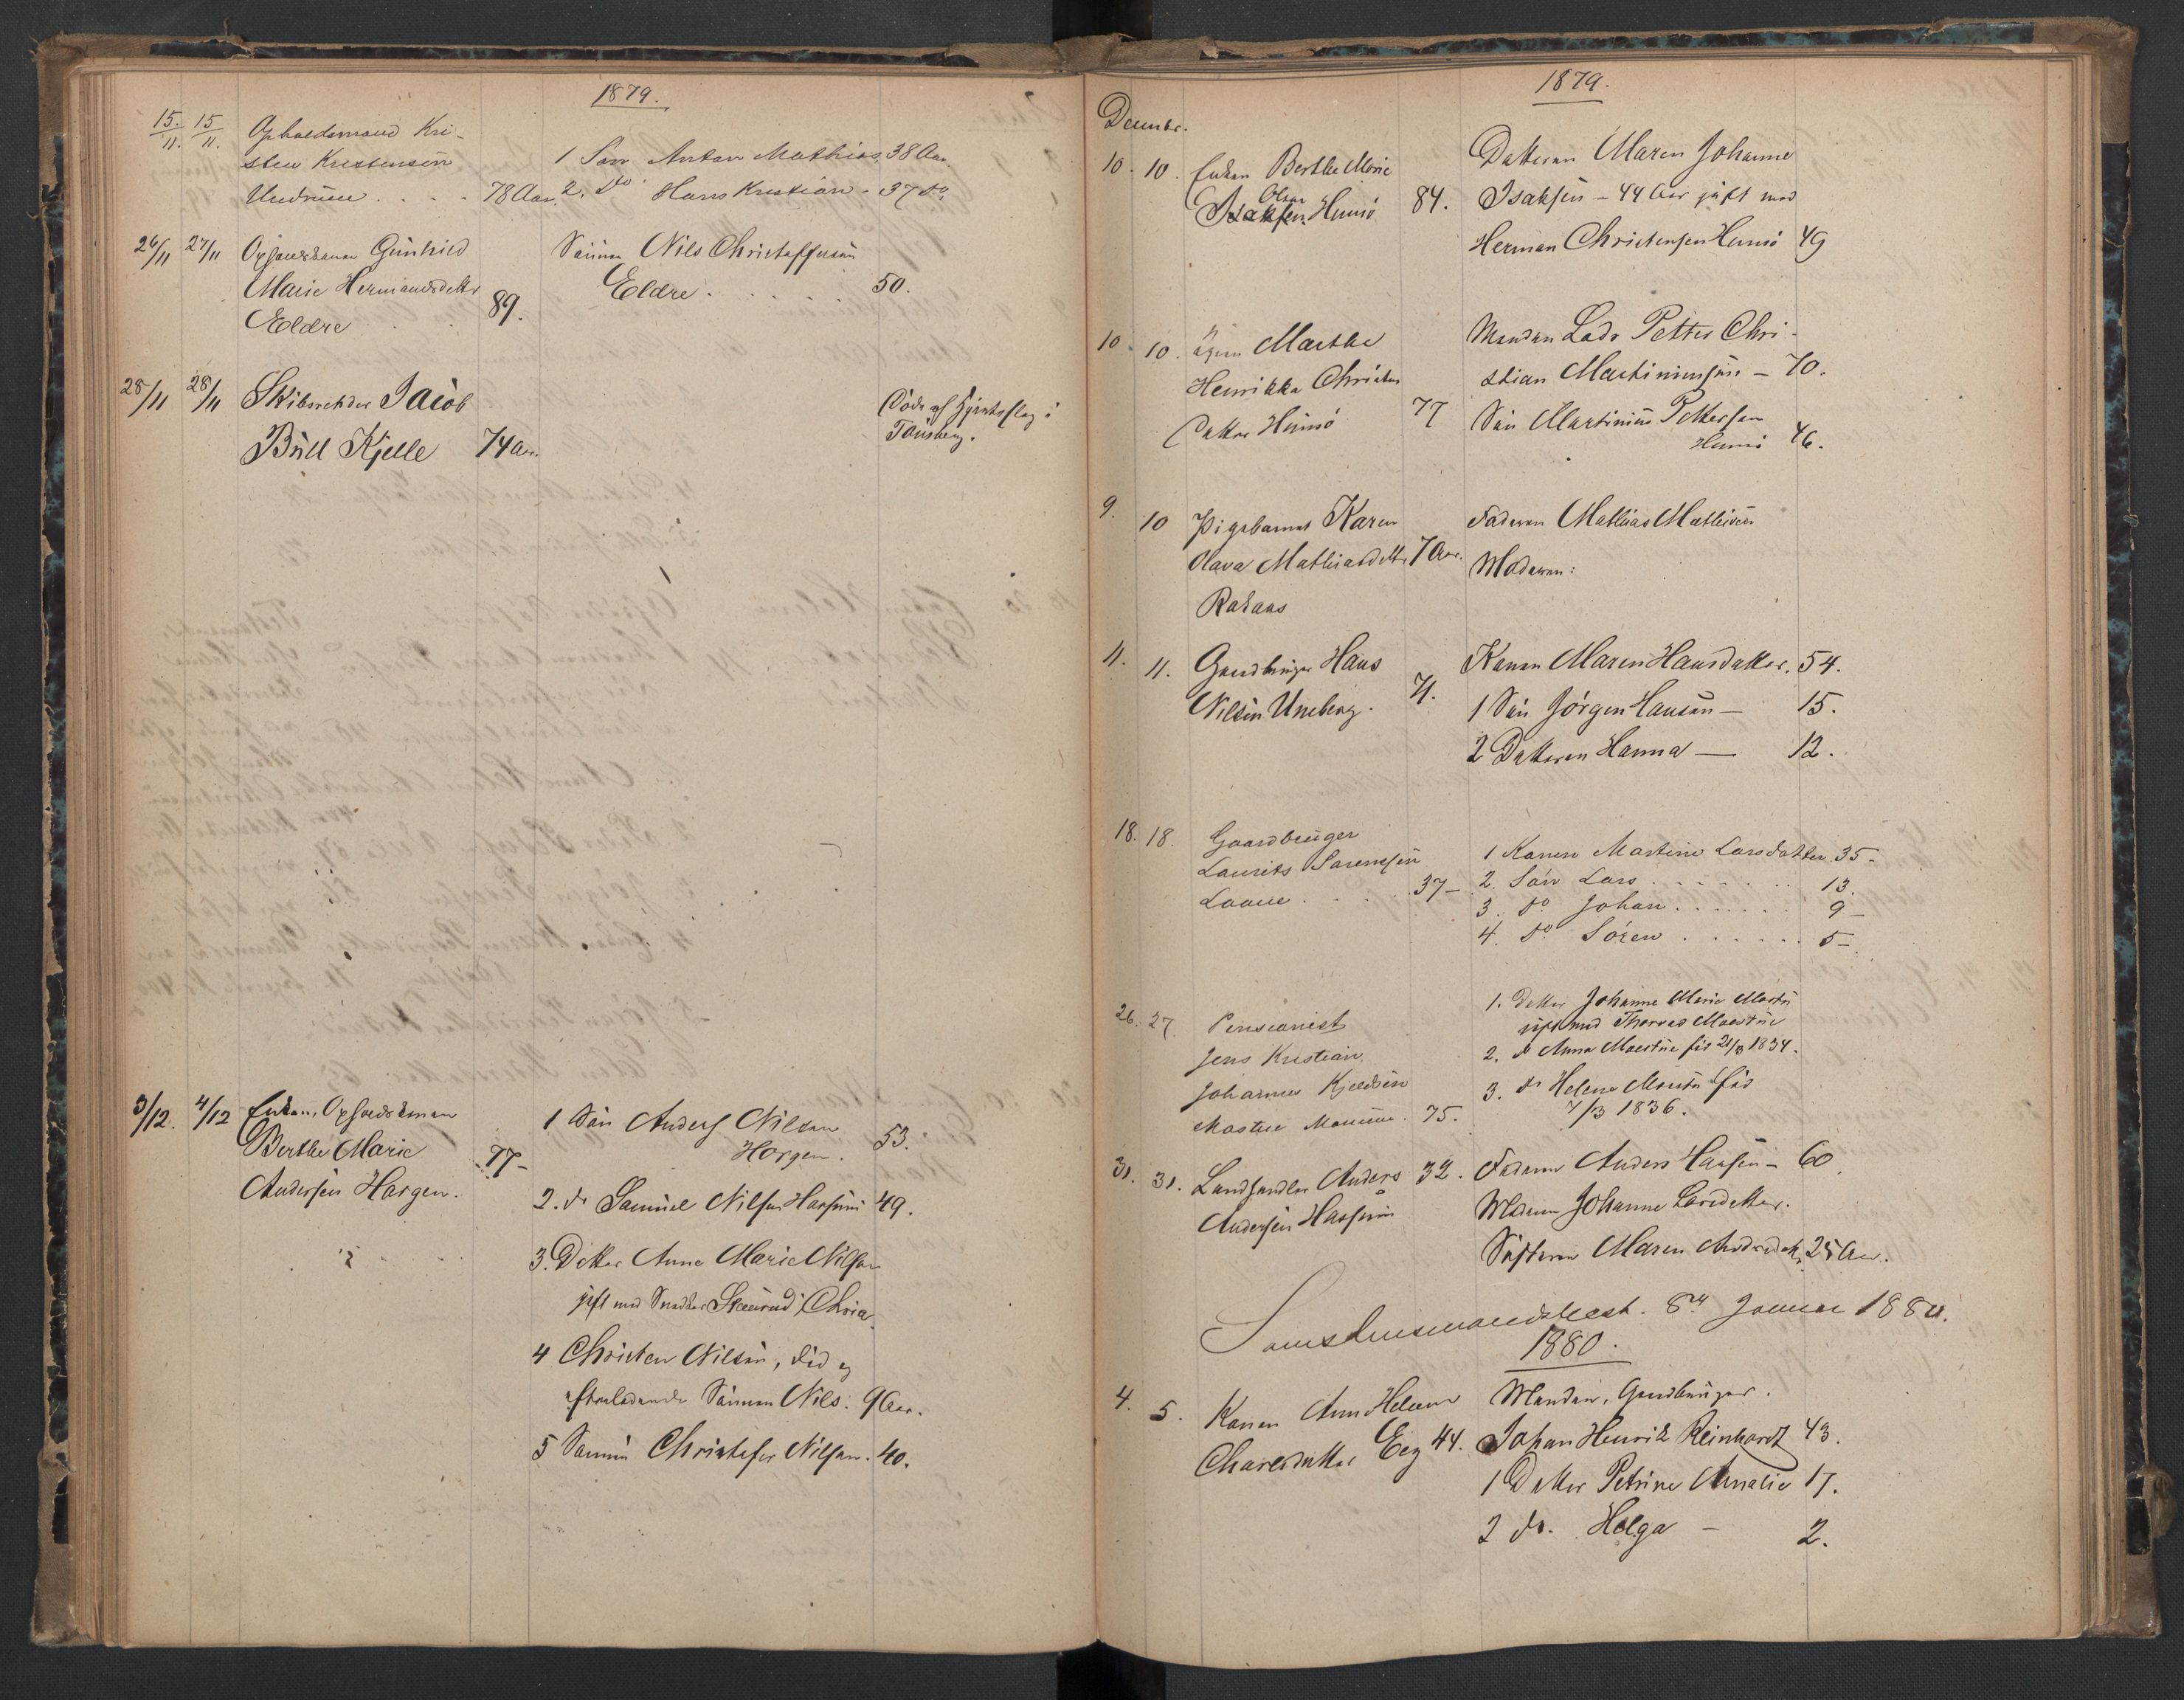 1879.
15./11. 15/11. Opholdsmand Kri-
sten Kristensen
Undrum . . . . 78 Aar.
1 Søn Anton Mathias, 38 Aar
2. do Hans Kristian - 37 do.
26/11 27/11 Gunhild
Marie Hermandsdatter
Eldre . . 89.
Sønnen Nils Christoffersen
Eldre . . . . . 50.
28/11 28/11 Skibsreder Jacob
Büll Kjelle 74 Aar.
Døde af Hjerteslag i
Tønsberg.
3/12. 4/12 Enken,
Berthe Marie
Andersen Horgen. 77-
1 Søn Anders Nilsen
Horgen. 53.
2. do Samuel Nilsen 49.
3. Datter Anne Marie Nilsen
gift med Snedker Chria.
4 Christen Nilsen, død og
efterladende Sønnen Nils. 9 Aar.
5 Sønnen Christofer Nilsen. 40.
1879.
Decembr.
10. 10. Enken Berthe Marie
Olsen
Isaksen Hunsø 84.
Datteren Maren Johanne
Isaksen - 44 Aar gift med
Herman Christensen Hunsø 49
10. 10. Marthe
Henrikka Christens
Datter Hunsø 77
Manden Lods Petter Chri-
stian Martiniusen - 70.
Søn Martinius Pettersen
Hunsø 46.
9. 10 Pigebarnet Karen
Olava Mathiasdatter 7 Aar.
Rakaas
Faderen Mathias Mathisen
Moderen:
11. 11. Gaardbruger Hans
Nilsen Uneberg. 71.
Konen Maren Hansdatter. 54.
1 Søn Jørgen Hansen - 15.
2 Datteren Hanna — 12.
18. 18. Gaardbruger
Laurits Sørenssen
Laane . . . . 37-
1 Konen Martine Larsdatter 35-
2. Søn Lars . . . . . . 13.
3. do Johan . . . . . . 9-
4. do Sören . . . . . . 5-
26. 27. Pensionist
Jens Kristian
Johannes Kjeldsen
75.
1. Datter Johanne Marie
gift med
2. do Anna født 21/8 1834.
3. do Helene født
7/3 1836.
31. 31. Landhandler Anders 32.
Andersen
Faderen Anders - 60
Moderen Johanne Larsdatter.
Søsteren Maren 25 Aar.
8de Januar 1880.
1880.
4. 5. Konen Anne Helene
Charlsdatter Eeg 44.
Manden, Gaardbruger.
Johan Henrik Reinhardt 43.
1 Datter Petrine Amalie 17.
2 do. Helga - 2.